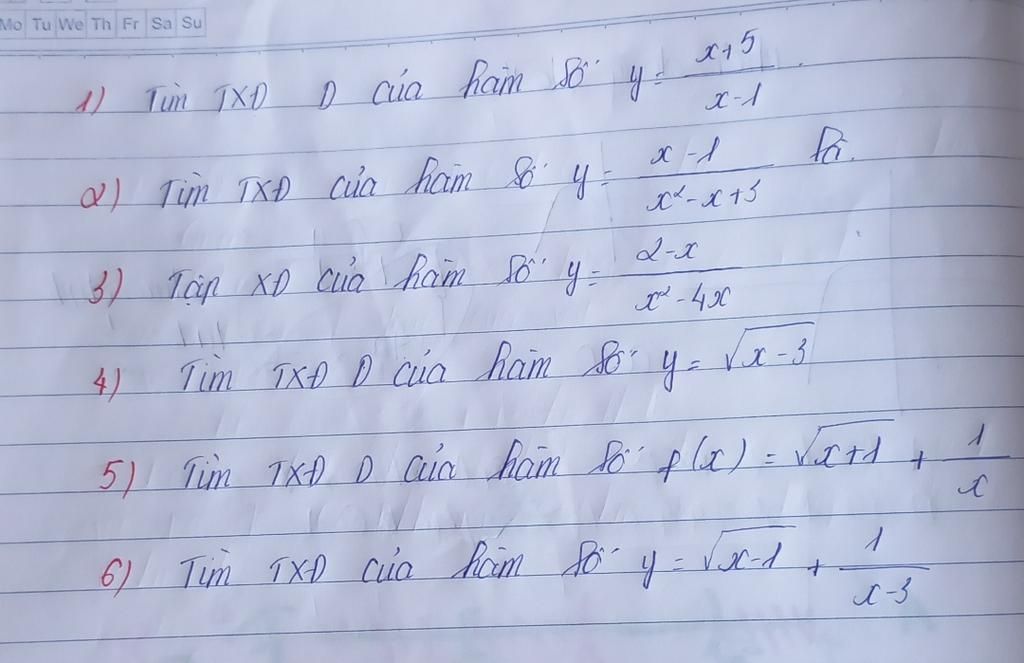 Mo Tu We Th Fr Sa Su
1) Tìm TXĐ D của hàm số y = \frac{x+5}{x-1}.
2) Tìm TXĐ của hàm số y = \frac{x-1}{x²-x+3} là.
3) Tập XĐ của hàm số y = \frac{2-x}{x²-4x}
4) Tìm TXĐ D của hàm số y = √(x-3)
5) Tìm TXĐ D của hàm số f(x) = √(x+1) + \frac{1}{x}
6) Tìm TXĐ của hàm số y = √(x-1) + \frac{1}{x-3}